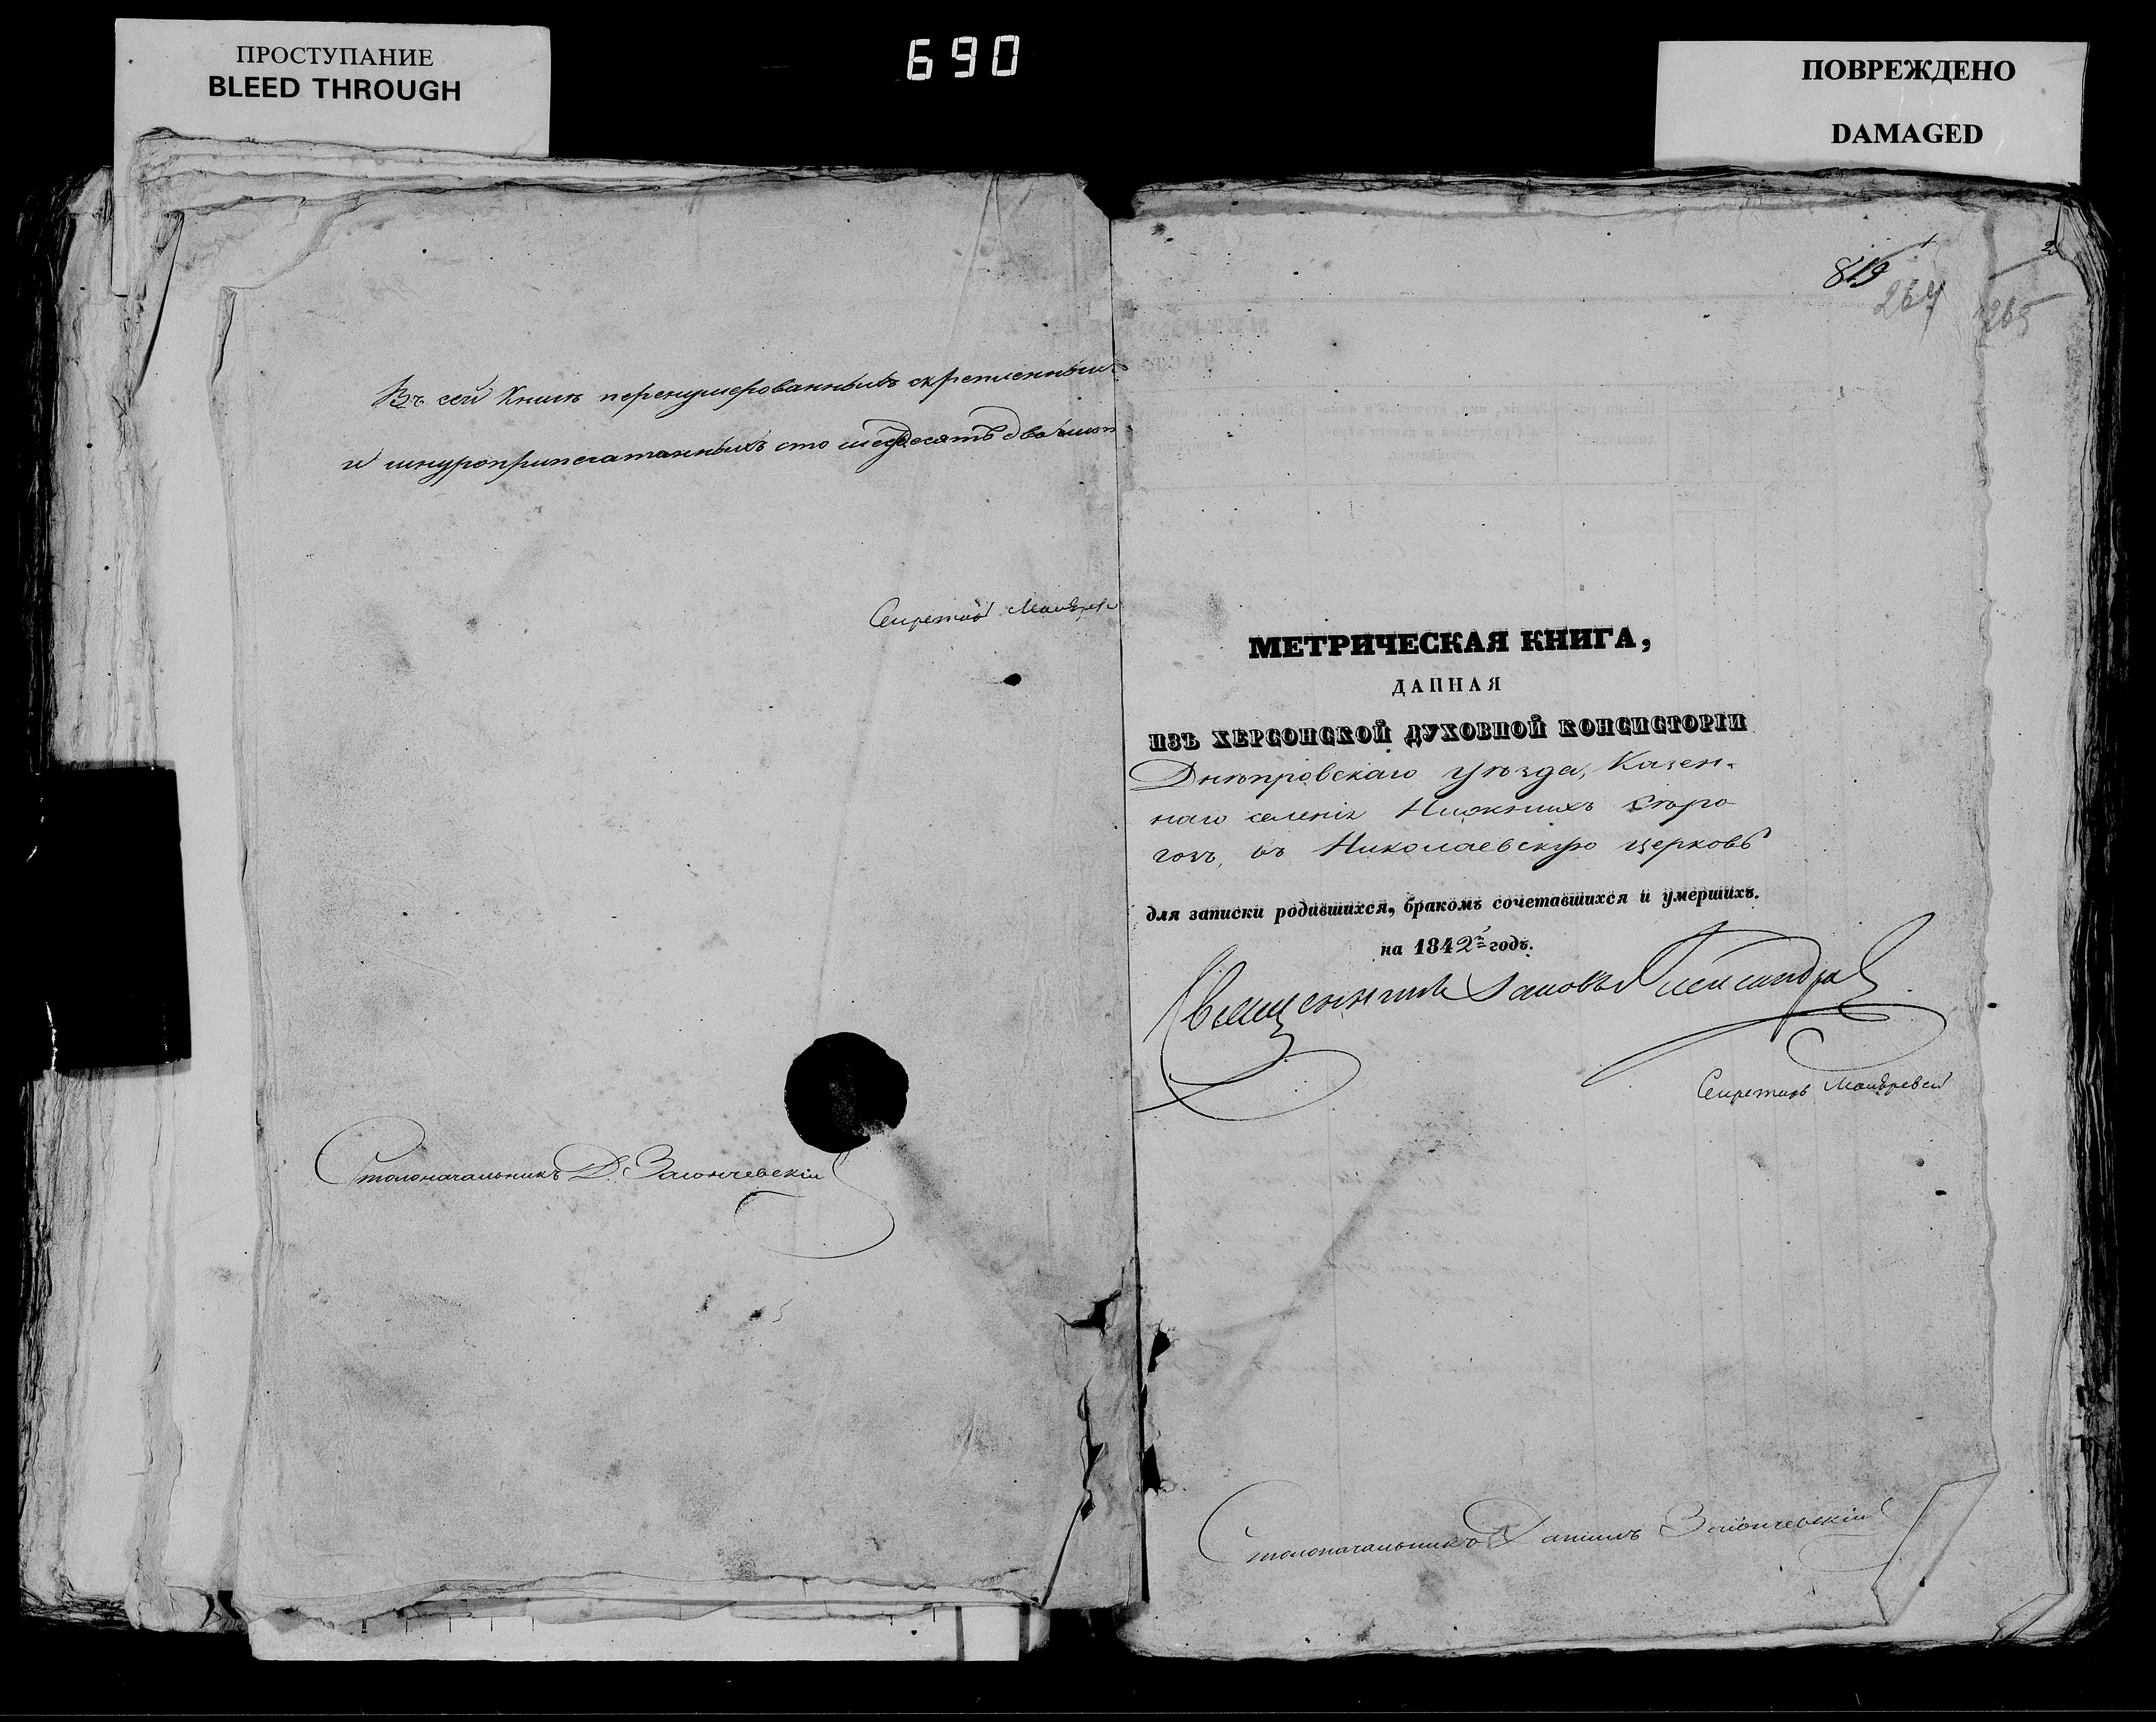 ПРОСТУПАНИЕ
BLEED THROUGH
690
ПОВРЕЖДЕНО
DAMAGED
Въ сей Книге перенумерованныхъ скрепленныхъ
и шнуроприпечатанныхъ сто шесдесятъ два
Секретарь
Столоначальникъ Д. Заіончевскій
819
264
265
2
МЕТРИЧЕСКАЯ КНИГА,
ДАННАЯ
ИЗЪ ХЕРСОНСКОЙ ДУХОВНОЙ КОНСИСТОРІИ
Днѣпровскаго уѣзда, Казен-
наго селенія Нижнихъ Сѣро
гозъ, въ Николаевскую церковь
для записки родившихся, бракомъ сочетавшихся и умершихъ.
на 1842й годъ.
Священникъ Іаковъ
Секретарь
Столоначальникъ Даніилъ Заіончевскій